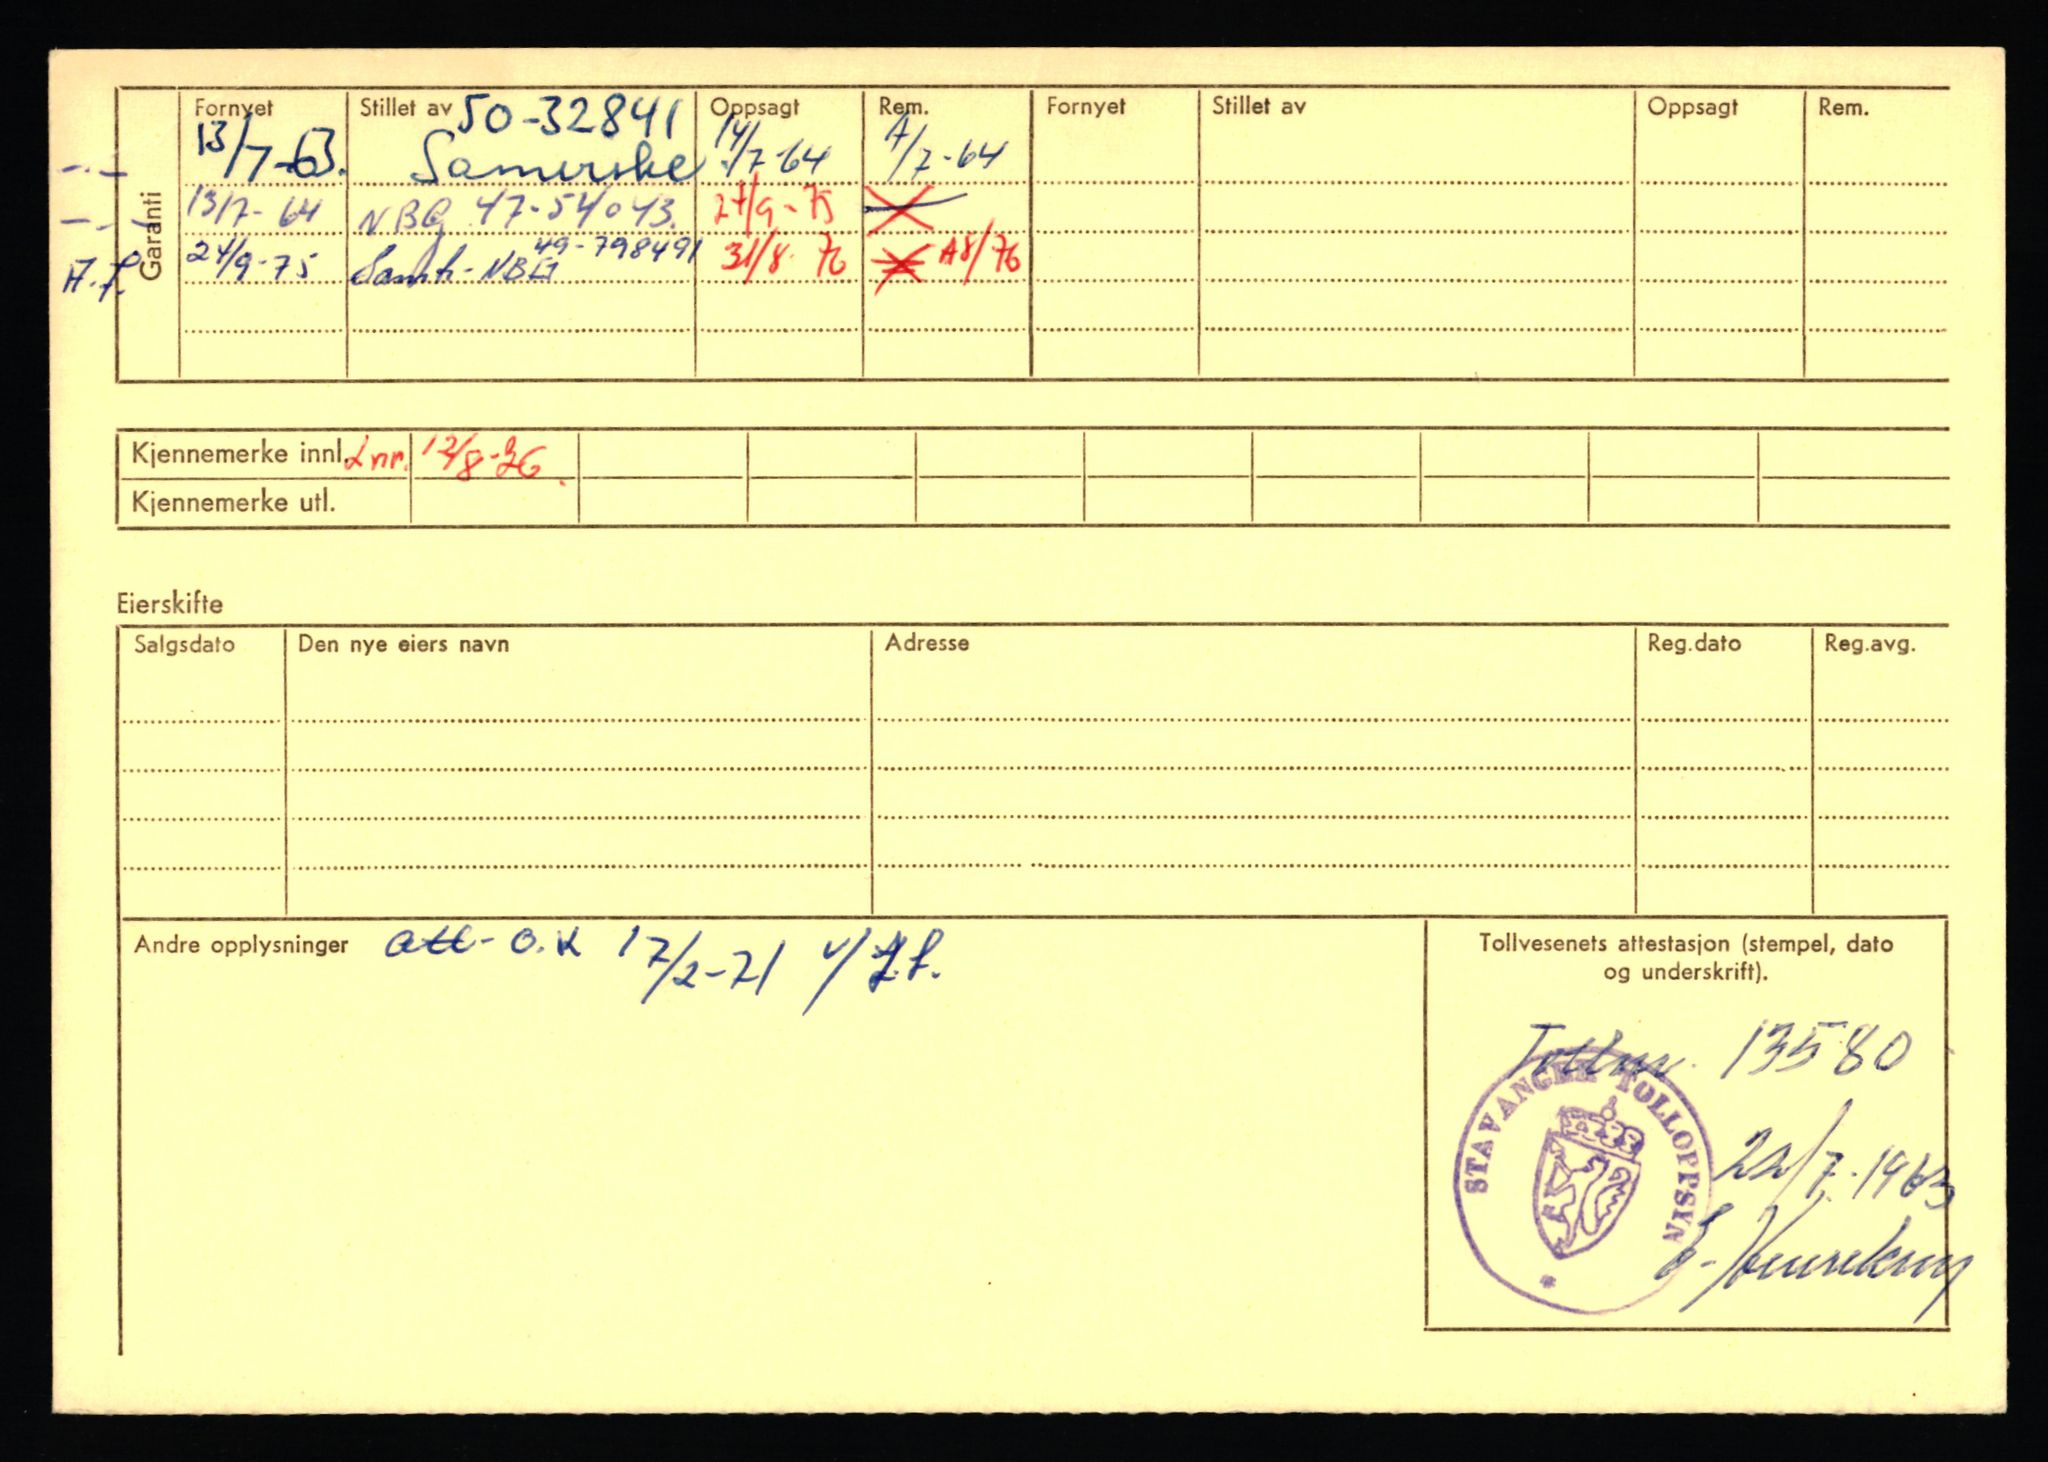 Garanti
Fornyet Stillet av 50-32841 Oppsagt Rem. Fornyet Stillet av Oppsagt Rem.
13/7-63. 14/7-64 A/7-64
13/7-64 NBG 47-54043. 24/9-75
24/9-75 NBG 49-798491 31/8 76 A8/76
Kjennemerke innl. 12/8-76.
Kjennemerke utl.
Eierskifte
Salgsdato Den nye eiers navn Adresse Reg.dato Reg.avg.
Andre opplysninger att- O.K 17/2-71 v/
Tollvesenets attestasjon (stempel, dato
og underskrift).
Tollnr. 13580
STAVANGER TOLLOPPSYN
22/7-1963